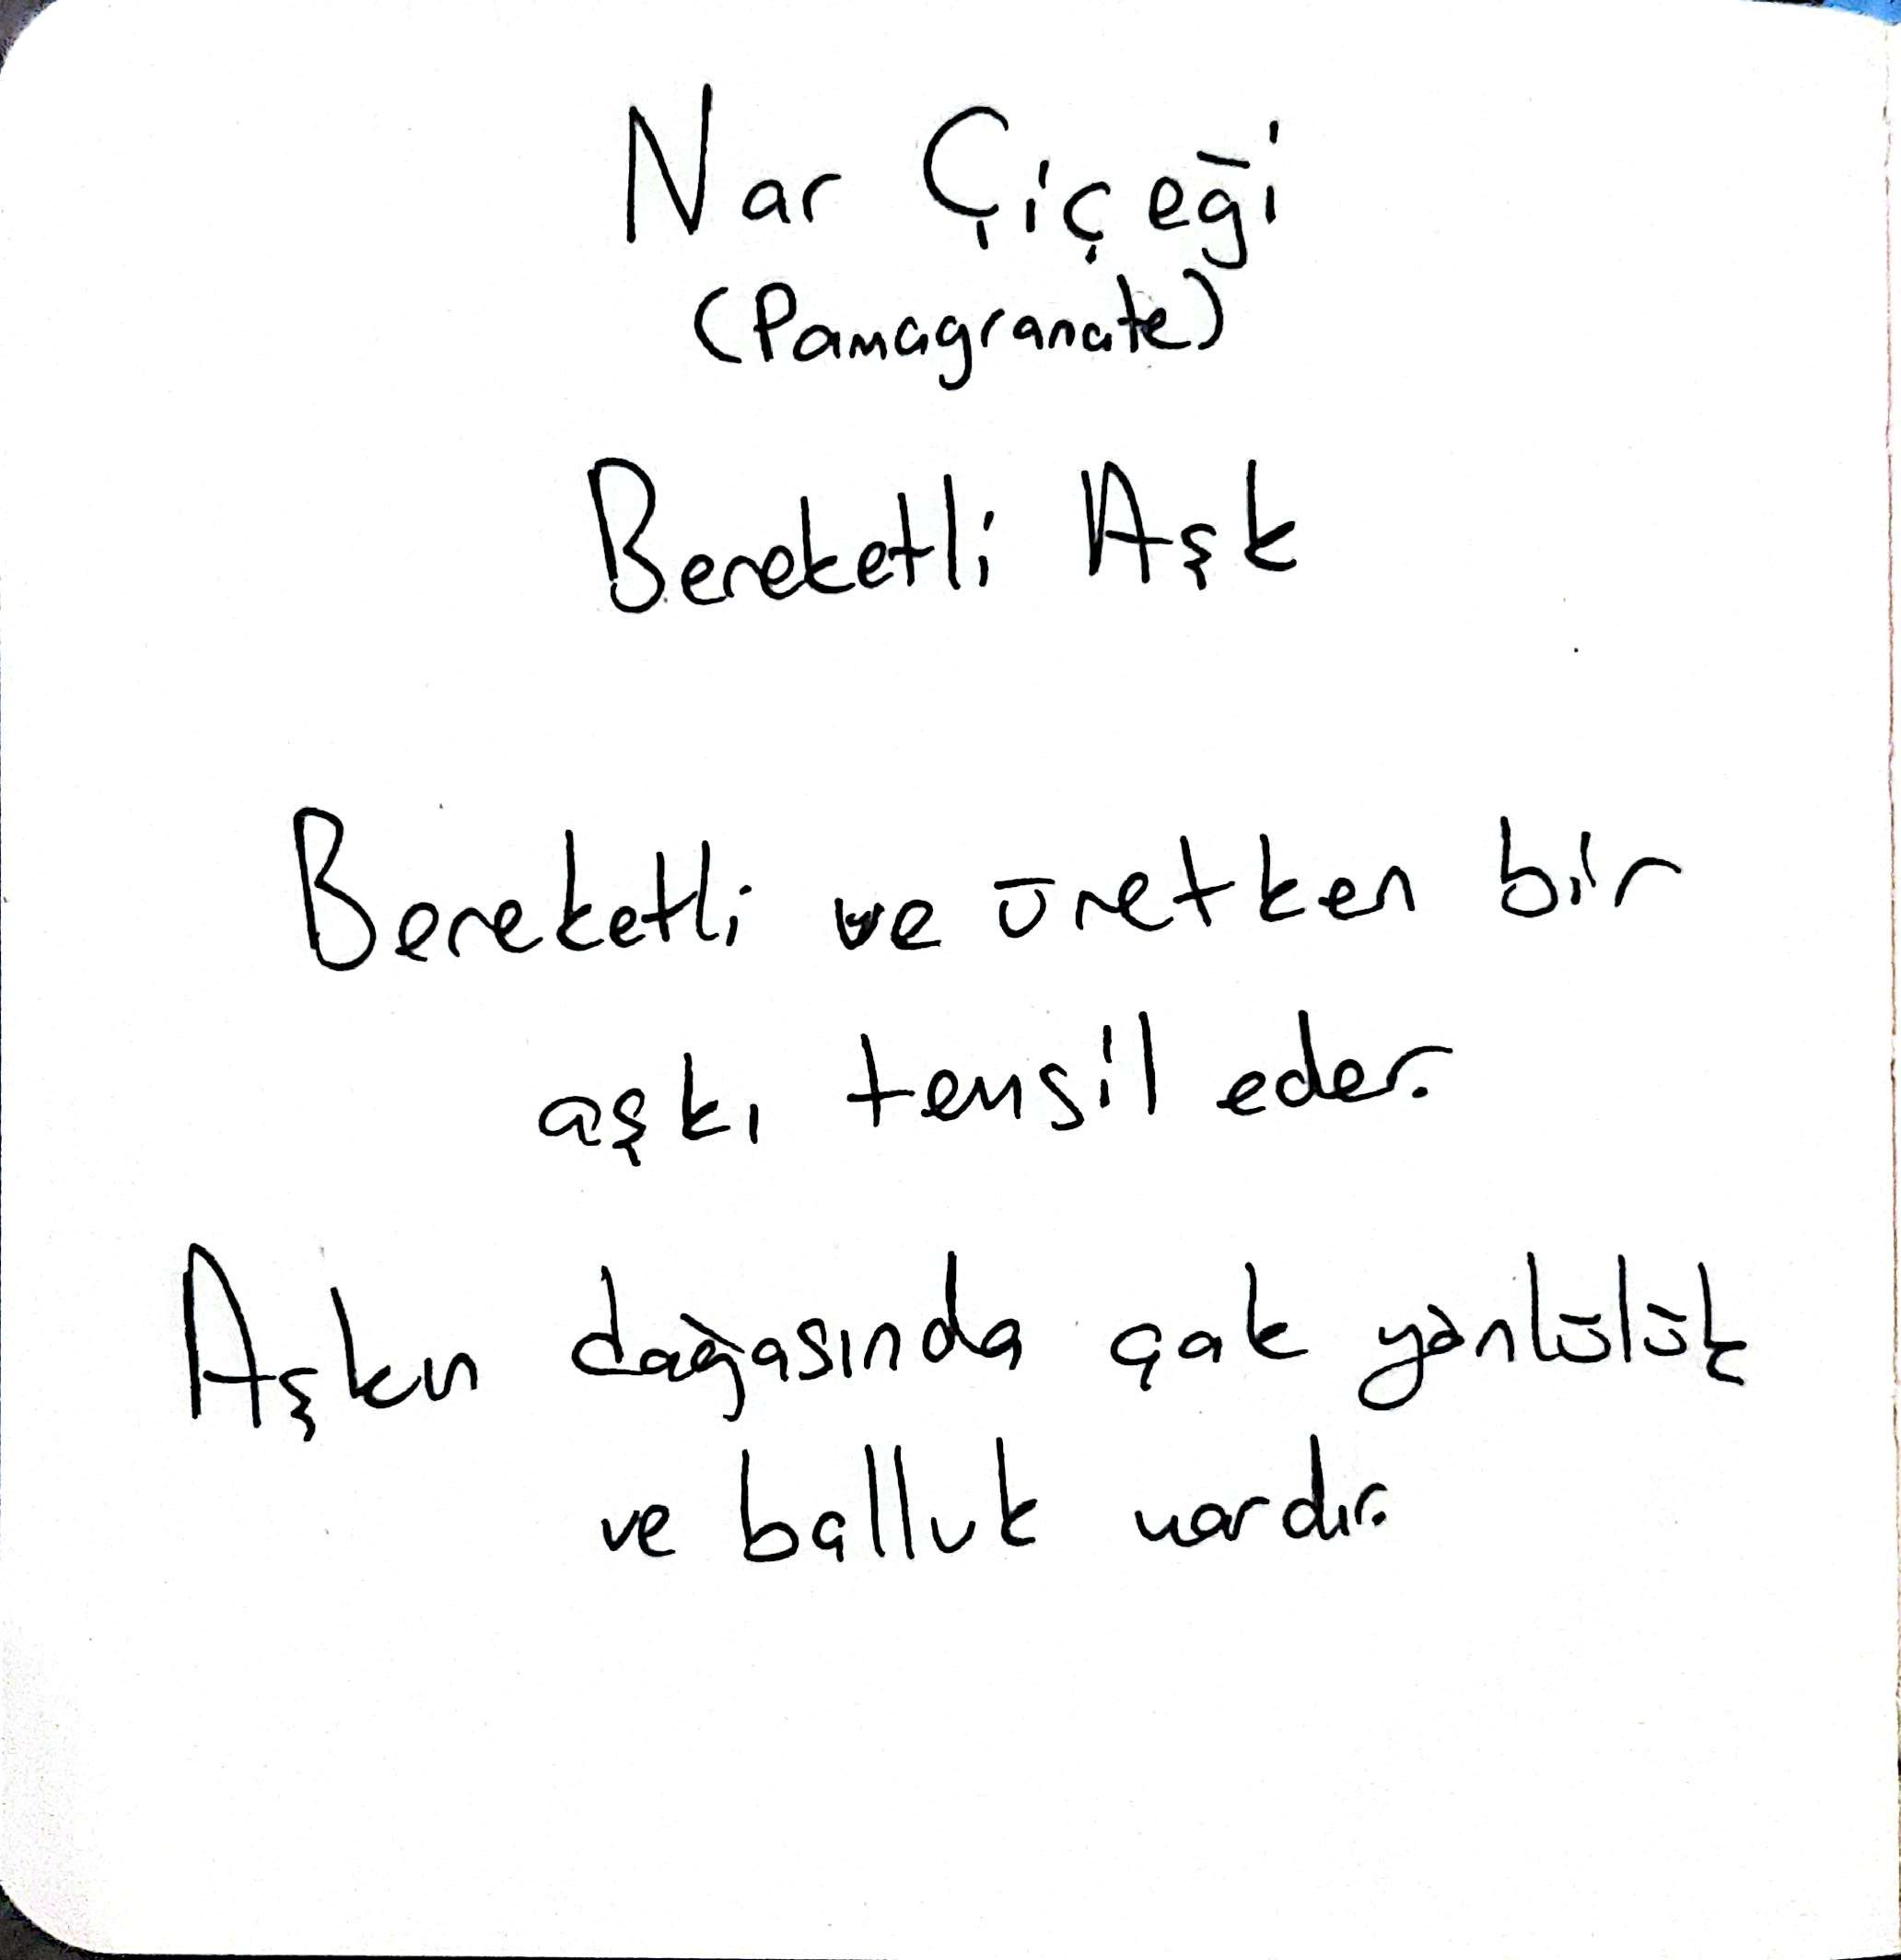 Nar Çiçeği
(Pamagranate)
Bereketli Aşk
Bereketli ve üretken bir
aşkı temsil eder.
Aşkın doğasında çok yönlülük
ve bolluk vardır.